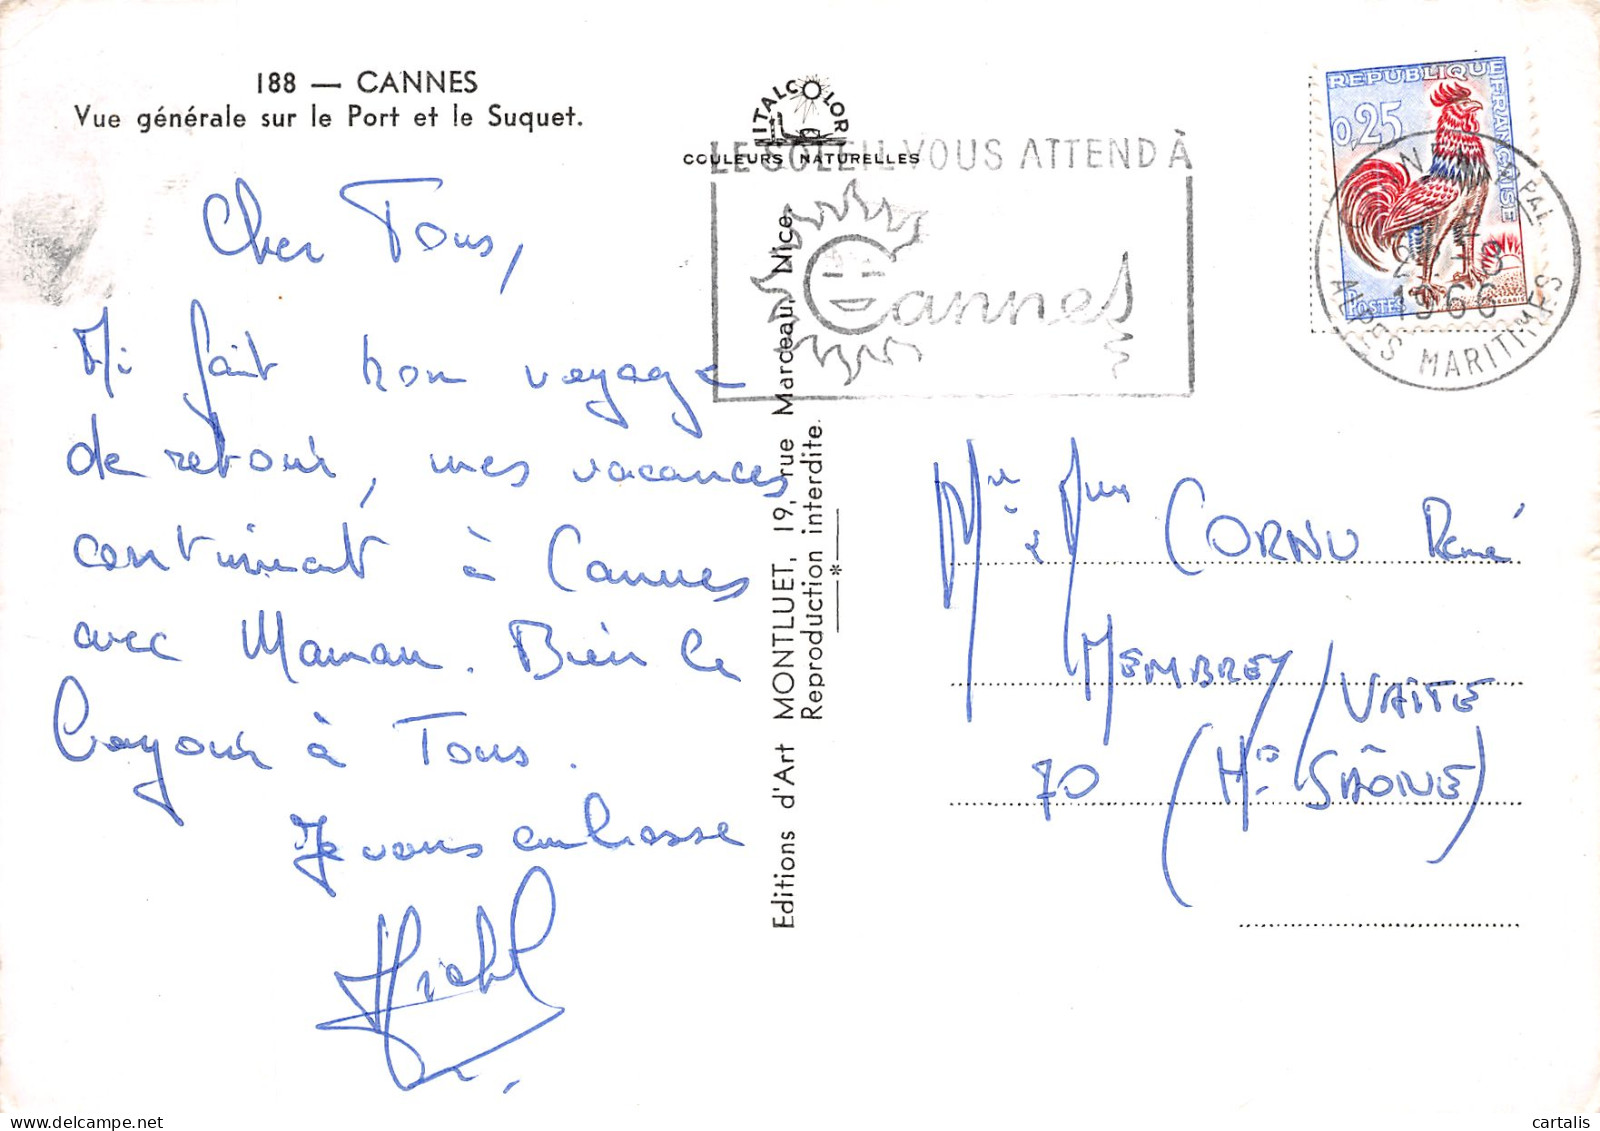 188 — CANNES
Vue générale sur le Port et le Suquet.
ITALCOLOR
COULEURS NATURELLES
LE SOLEIL VOUS ATTEND À
Cannes
REPUBLIQUE FRANÇAISE
0,25
POSTES
DECARIS
CANNES PPAL
1966
ALPES MARITIMES
Cher Tous,
Ai fait bon voyage
de retour, mes vacances
continuent à Cannes
avec Maman. Bien le
Bonjour à Tous.
Je vous embrasse
Michel
Editions d'Art MONTLUET, 19, rue Mardeau, Nice.
Reproduction interdite.
Mr & Mme CORNU René
MEMBREY / VAITE
70 (Hte SAÔNE)
cartalis